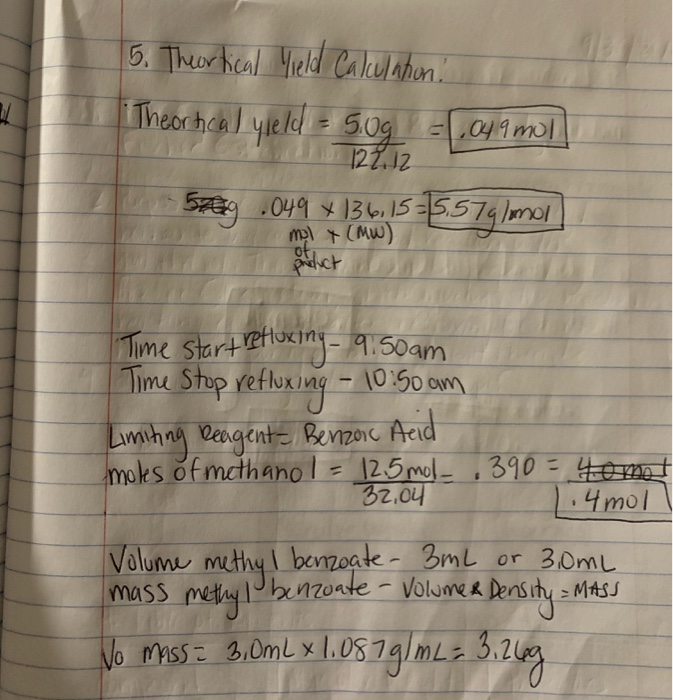 5. Theortical Yield Calculation:
Theortical yield = 5.0g = .049mol
122.12
g .049 x 136.15 = 5.57g/mol
mol x (MW)
of
product
Time start refluxing - 9:50am
Time Stop refluxing - 10:50am
Limiting Reagent = Benzoic Acid
moles of methanol = 12.5mol = .390 = 4.0 mol
32.04 .4mol
Volume methyl benzoate - 3mL or 3.0mL
mass methyl benzoate - Volume & Density = MASS
mass = 3.0mL x 1.087g/mL = 3.26g